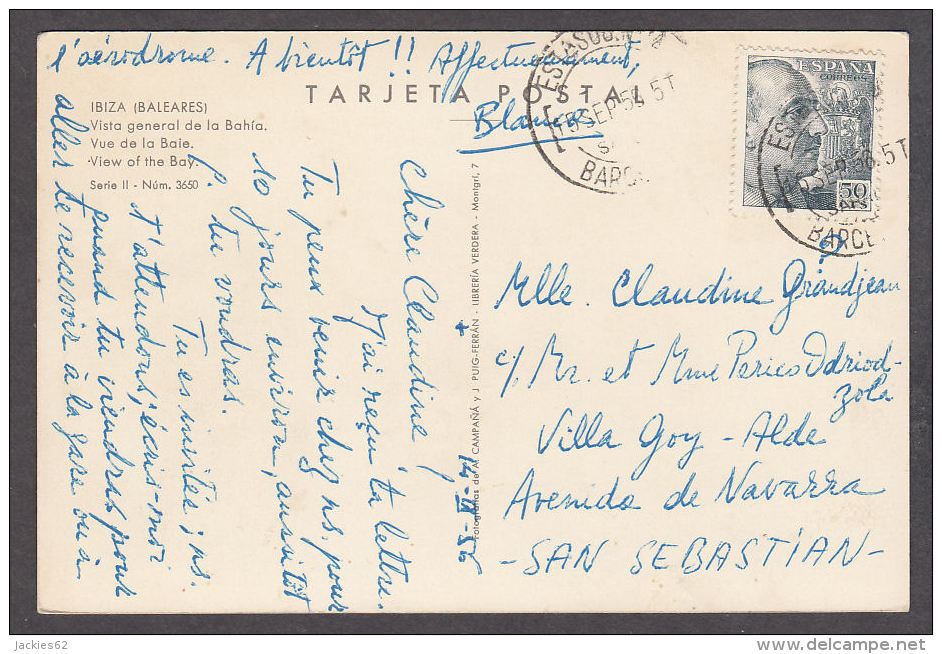 l'aérodrome. A bientôt !! Affectueusement,
Blanca
TARJETA POSTAL
IBIZA (BALEARES)
Vista general de la Bahía.
Vue de la Baie.
View of the Bay.
Serie II - Núm. 3650
14-IX-56
Chère Claudine
J'ai reçu ta lettre.
Tu peux venir chez ns. pour
10 jours environ, aussitôt
q. tu voudras.
Tu es invitée; ns.
t'attendons; écris-moi
quand tu viendras pour
aller te recevoir à la gare ou à
Fotografías de A. CAMPAÑÁ y J. PUIG-FERRÁN - LIBRERÍA VERDERA - Montgrí, 7
ESPAÑA
CORREOS
50
CTS
15 SEP 56 5T
BARCE
SEP 56 5T
BARCE
Mlle. Claudine Grandjean
c/ Mr. et Mme Perico Odriod-
zola
Villa Goy - Alde
Avenida de Navarra
-SAN SEBASTIAN-
jackies62
delcampe.net